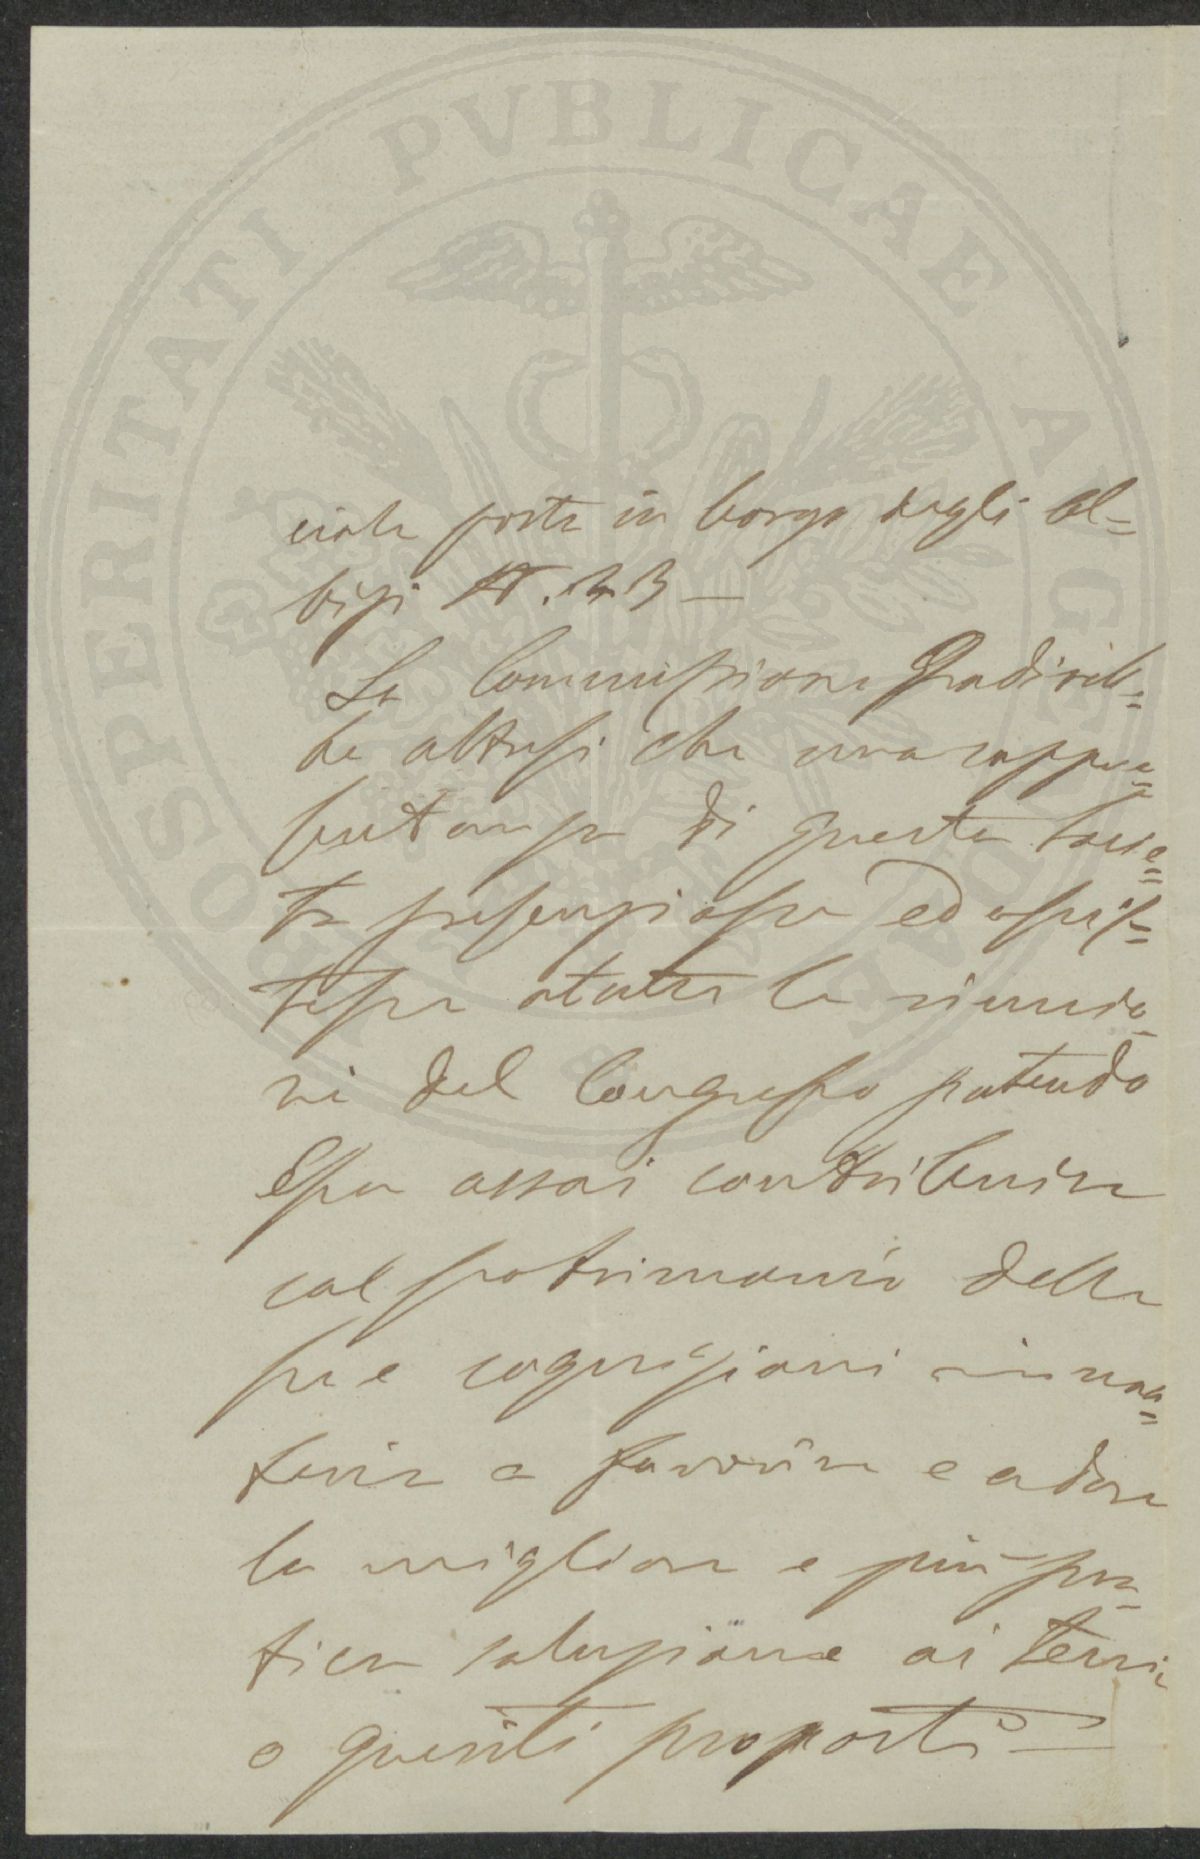 PROSPERITATI PVBLICAE AVGENDAE
ciale posta in borgo degli Al=
bizi N. 23 —
La Commissione gradireb=
be altresi che una rappre=
sentanza di questa Socie=
tà presenziasse ed assis=
tesse a tutte le riunio=
ni del Congresso potendo
Essa assai contribuire
col patrimonio delle
sue cognizioni
a favorire e a dare
la migliore e più pra=
tica soluzione ai temi
o quesiti proposti —